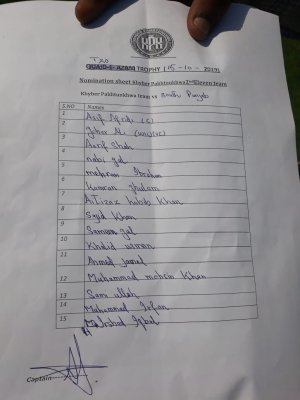 KPK
T20
QUAID-E-AZAM TROPHY (15-10-2019)
Nomination sheet Khyber Pakhtunkhwa 2nd Eleven team
Khyber Pakhtunkhwa team vs South Punjab
S.NO Names
1 Asif Afridi (C)
2 Gohar Ali (WK)(VC)
3 Aarif Shah
4 nabi gul
5 mehran Ibrahim
6 Kamran ghulam
7 Aitizaz habib Khan
8 Sajid Khan
9 Sameen gul
10 Khalid usman
11 Ahmed jamal
12 Muhammad mohsin Khan
13 Sami ullah
14 Muhammad Irfan
15 Irshad Iqbal
Captain